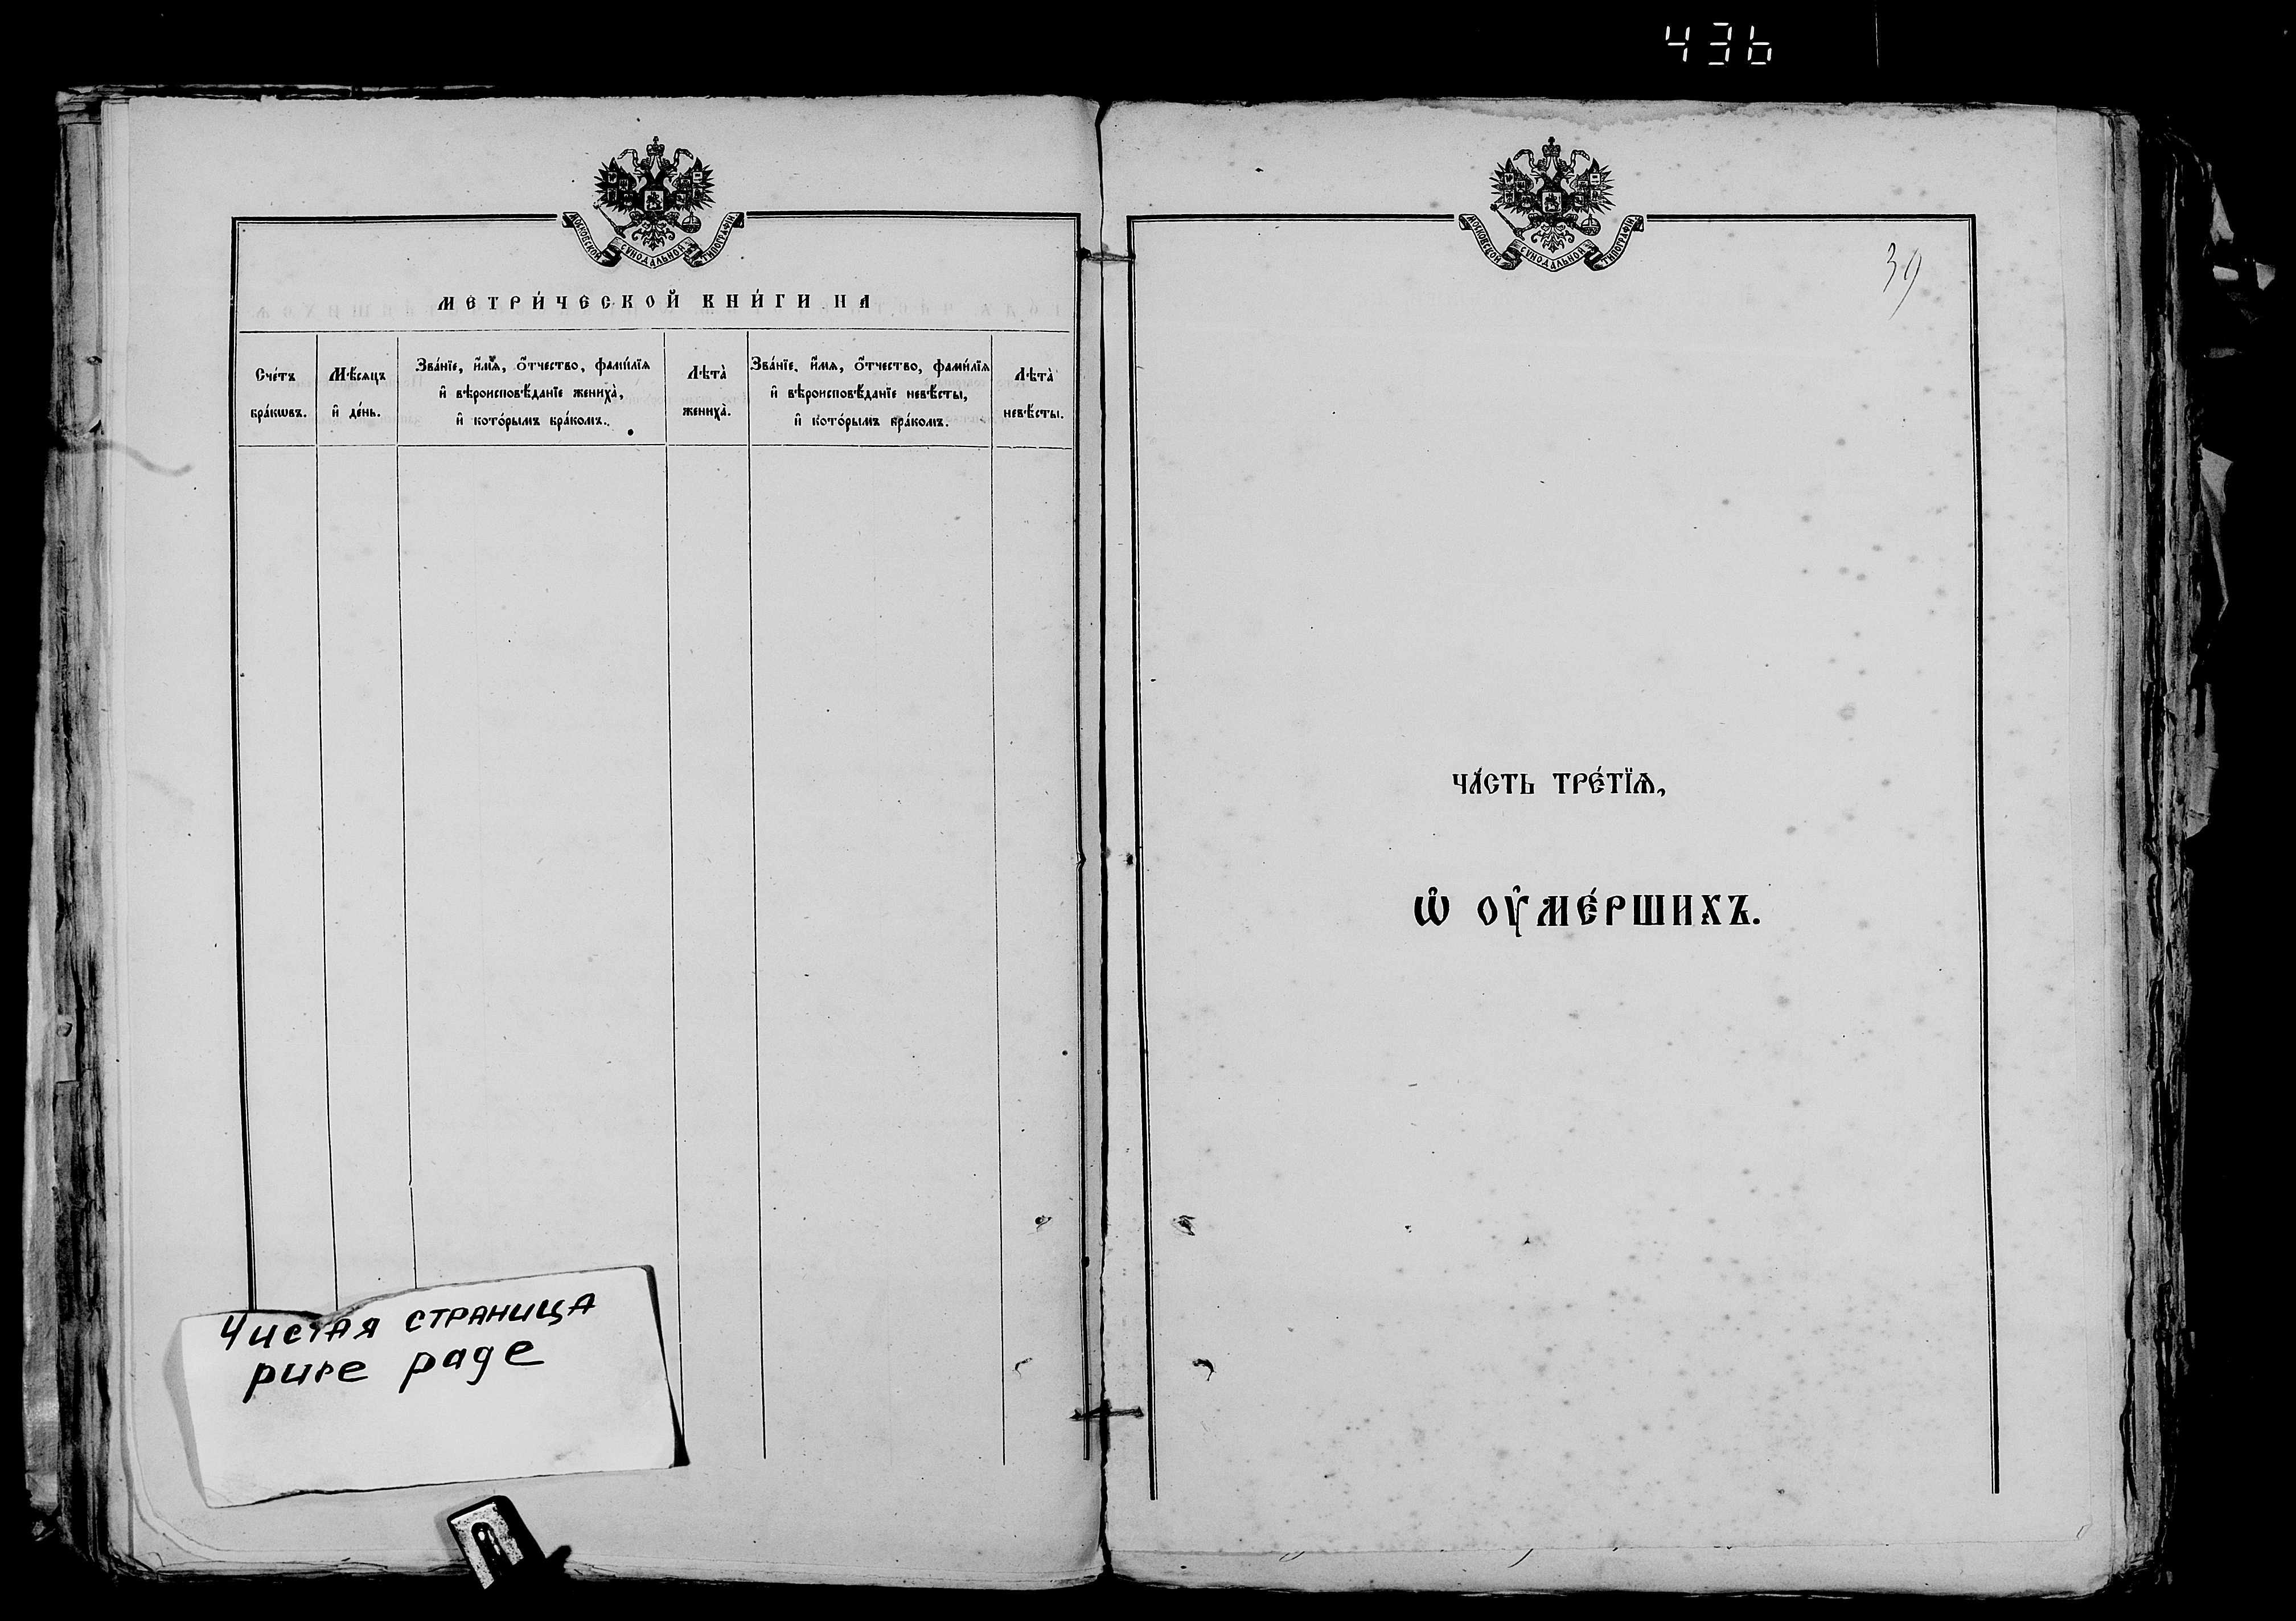 436
МОСКОВСКОЙ СѴНОДАЛЬНОЙ ТИПОГРАФІИ
МЕТРИ́ЧЕСКОЙ КНИ́ГИ НА
Сче́тъ
бра́кѡвъ.
Мѣ́сяцъ
и҆ де́нь.
Зва́нїе, и҆́мѧ, ѻ҆́тчество, фами́лїѧ
и҆ вѣроисповѣ́данїе жениха̀,
и҆ кото́рымъ бра́комъ.
Лѣта̀
жениха̀.
Зва́нїе, и҆́мѧ, ѻ҆́тчество, фами́лїѧ
и҆ вѣроисповѣ́данїе невѣ́сты,
и҆ кото́рымъ бра́комъ.
Лѣта̀
невѣ́сты.
Чистая страница
pure page
МОСКОВСКОЙ СѴНОДАЛЬНОЙ ТИПОГРАФІИ
39
ЧА́СТЬ ТРЕ́ТЇѦ,
Ѡ҆ ОУ҆МЕ́РШИХЪ.